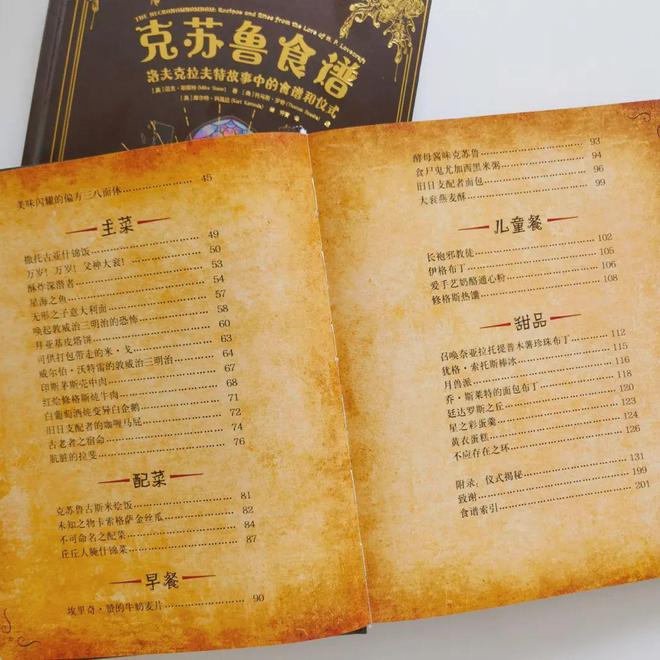 THE NECRONOMNOMNOM: Recipes and Rites from the Lore of H. P. Lovecraft
克苏鲁食谱
洛夫克拉夫特故事中的食谱和仪式
美味闪耀的偏方三八面体 45
主菜
撒托古亚什锦饭 49
万岁！万岁！父神大衮！ 50
酥炸深潜者 53
星海之鱼 54
无形之子意大利面 57
唤起敦威治三明治的恐怖 58
拜亚基皮塔饼 60
可供打包带走的米·戈 63
威尔伯·沃特雷的敦威治三明治 64
印斯茅斯壳中肉 67
红烩修格斯炖牛肉 68
白葡萄酒炖变异白企鹅 71
旧日支配者的咖喱马屁 72
古老者之宿命 74
肮脏的拉斐 76
配菜
克苏鲁古斯米烩饭 81
未知之物卡索格萨金丝瓜 82
不可命名之配菜 84
丘丘人腌什锦菜 87
早餐
埃里奇·赞的牛奶麦片 90
酵母酱味克苏鲁 93
食尸鬼尤加西黑米粥 94
旧日支配者面包 96
大衮燕麦酥 99
儿童餐
长袍邪教徒 102
伊格布丁 105
爱手艺奶酪通心粉 106
修格斯热馓 108
甜品
召唤奈亚拉托提普木薯珍珠布丁 112
犹格·索托斯棒冰 115
月兽派 116
乔·斯莱特的面包布丁 118
廷达罗斯之丘 120
星之彩蛋羹 123
黄衣蛋糕 124
不应存在之环 126
附录：仪式揭秘 131
致谢 199
食谱索引 201